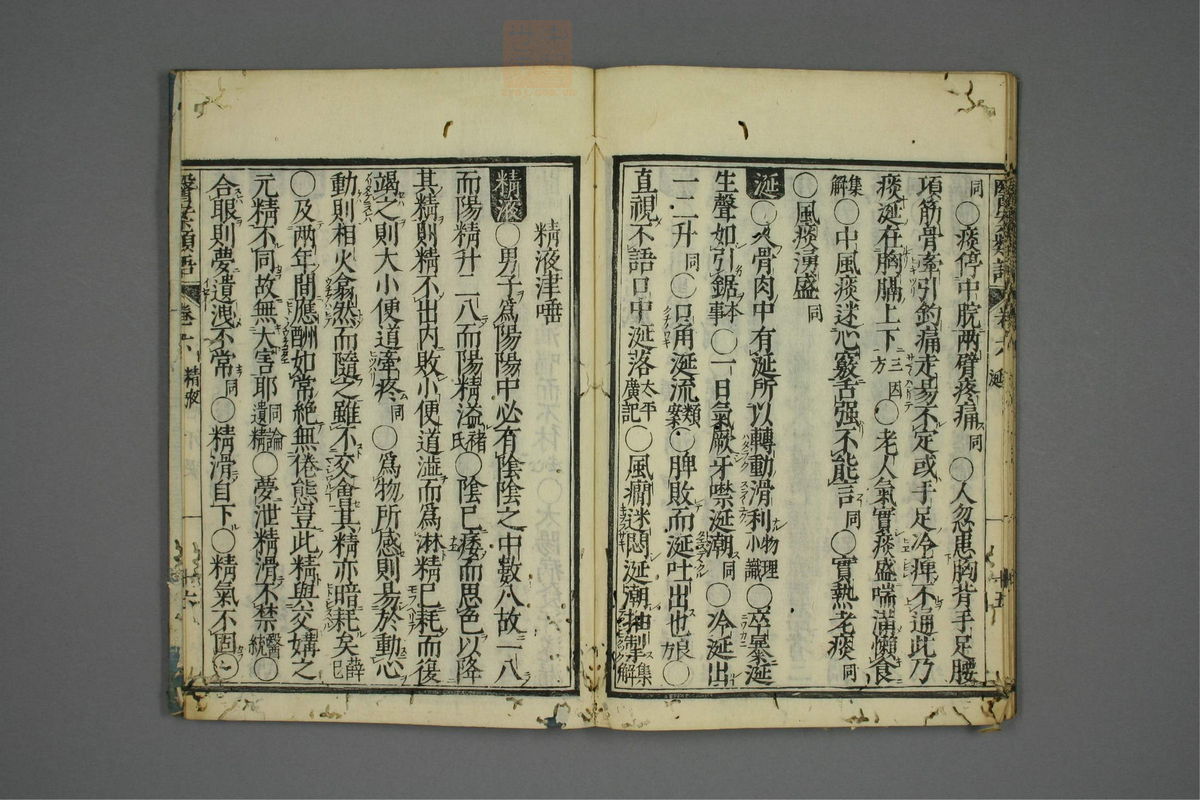 同○痰停中脘兩臂疼痛同○人忽患胸背手足腰
項筋骨牽引釣痛走易不定或手足冷痺不通此乃
痰涎在胸膈上下三因方○老人氣實痰盛喘滿懶食
集解○中風痰迷心竅舌强不能言同○實熱老痰同
○風痰湧盛同
涎○人骨肉中有涎所以轉動滑利物理小識○卒暴涎
生聲如引鋸本事○一日氣厥牙噤涎潮同○冷涎出
一二升同○口角涎流類案○脾敗而涎吐出也○
直視不語口中涎落太平廣記○風癇迷悶涎潮抽掣集解
醫學類語 卷六 涎 十五
精液津唾
精液○男子爲陽陽中必有陰陰之中數八故一八
而陽精升二八而陽精溢褚氏○陰已痿而思色以降
其精則精不出内敗小便道澁而爲淋精已耗而復
竭之則大小便道牽疼同○爲物所感則易於動心
動則相火翕然而隨之雖不交會其精亦暗耗矣薛己
○及兩年間應酬如常絶無倦態豈此精與交媾之
元精不同故無大害耶同論遺精○夢泄精滑不禁醫統○
合眼則夢遺洩不常同○精滑自下○精氣不固○
卷六 精液 十六